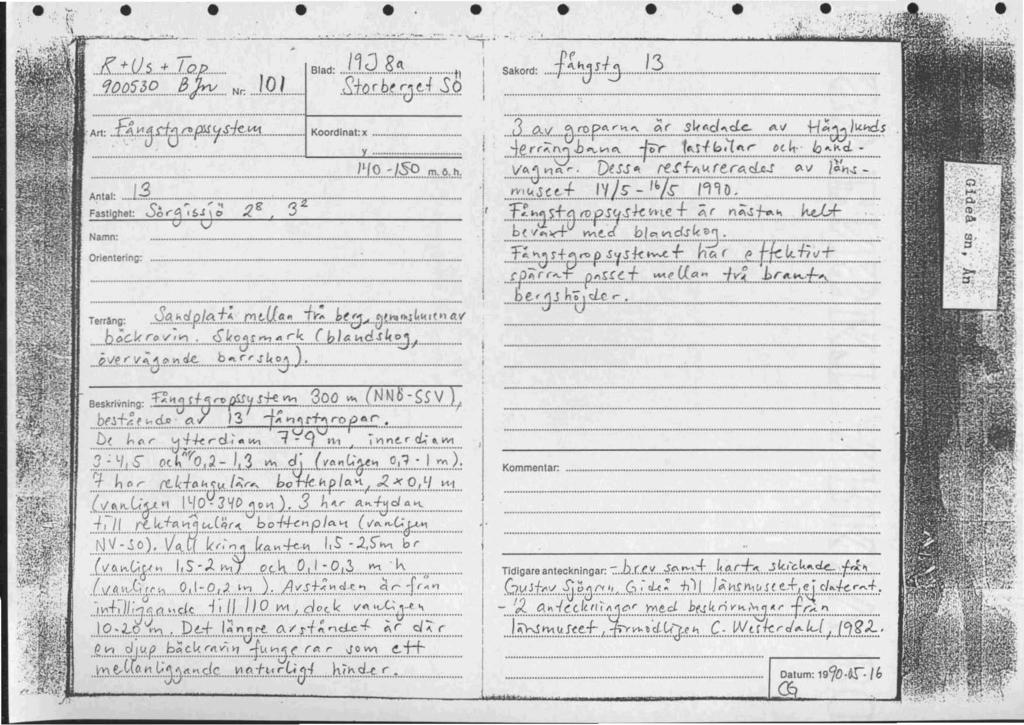 R + Us + Top
900530 BJn Nr: 101
Blad: 19J 8a
Storberget SÖ
Art: Fångstgropssystem
Koordinat: x
y
140-150 m. ö. h.
Antal: 13
Fastighet: Sörgissjö 2⁸, 3²
Namn:
Orientering:
Terräng: Sandplatå mellan två berg, genomskuren av
bäckravin. Skogsmark (blandskog,
övervägande barrskog).
Beskrivning: Fångstgropssystem 300 m (NNÖ-SSV),
bestående av 13 fångstgropar.
De har ytterdiam 7-9 m, innerdiam
3-4,5 och 0,2-1,3 m dj (vanligen 0,7-1 m).
7 har rektangulära bottenplan, 2×0,4 m
(vanligen 140-340 gon). 3 har antydan
till rektangulära bottenplan (vanligen
NV-SO). Vall kring kanten 1,5-2,5m br
(vanligen 1,5-2 m) och 0,1-0,3 m h
(vanligen 0,1-0,2 m). Avstånden är från
intilliggande till 110 m, dock vanligen
10-20 m. Det längre avståndet är där
en djup bäckravin fungerar som ett
mellanliggande naturligt hinder.
Sakord: fångstg 13
3 av groparna är skadade av Hägglunds
terrängbana för lastbilar och band-
vagnar. Dessa restaurerades av läns-
museet 14/5 - 16/5 1990.
Fångstgropsystemet är nästan helt
beväxt med blandskog.
Fångstgropsystemet har effektivt
spärrat passet mellan två branta
bergshöjder.
Kommentar:
Tidigare anteckningar: - brev samt karta skickade från
Gustav Sjögren, Gideå till länsmuseet, ej daterat.
- 2 anteckningar med beskrivningar från
länsmuseet, förmodligen C. Westerdahl, 1982.
Datum: 1990-05-16
CG
Gideå sn, Ån